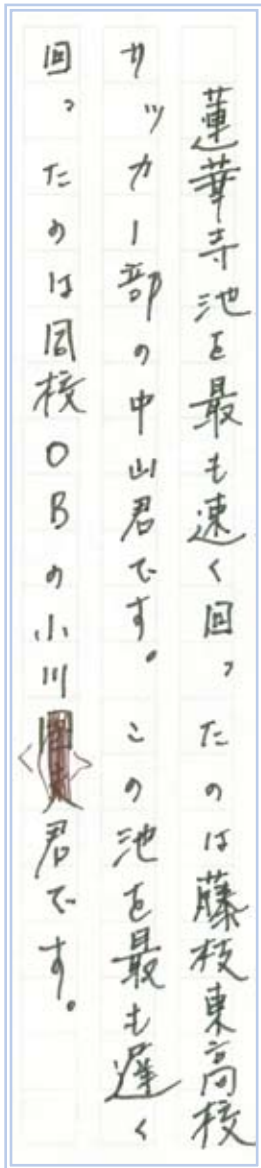 蓮華寺池を最も速く回ったのは藤枝東高校
サッカー部の中山君です。この池を最も遅く
回ったのは同校OBの小川君です。